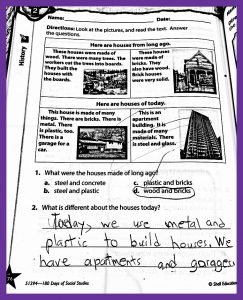 12
Name:
Date:
History
Directions: Look at the pictures, and read the text. Answer
the questions.
Here are houses from long ago.
These houses were made of
wood. There were many trees. The
workers cut the trees into boards.
They built the
houses with
the boards.
These houses
were made of
bricks. They
also have wood.
Brick houses
were very solid.
Here are houses of today.
This house is made of many
things. There are bricks. There is
metal. There
is plastic, too.
There is a
garage for a
car.
This is an
apartment
building. It is
made of many
materials. There
is steel and glass.
1. What were the houses made of long ago?
a. steel and concrete
b. steel and plastic
c. plastic and bricks
d. wood and bricks
2. What is different about the houses today?
Today, we use metal and
plastic to build houses. We
have apartments and garages
51394—180 Days of Social Studies
© Shell Education